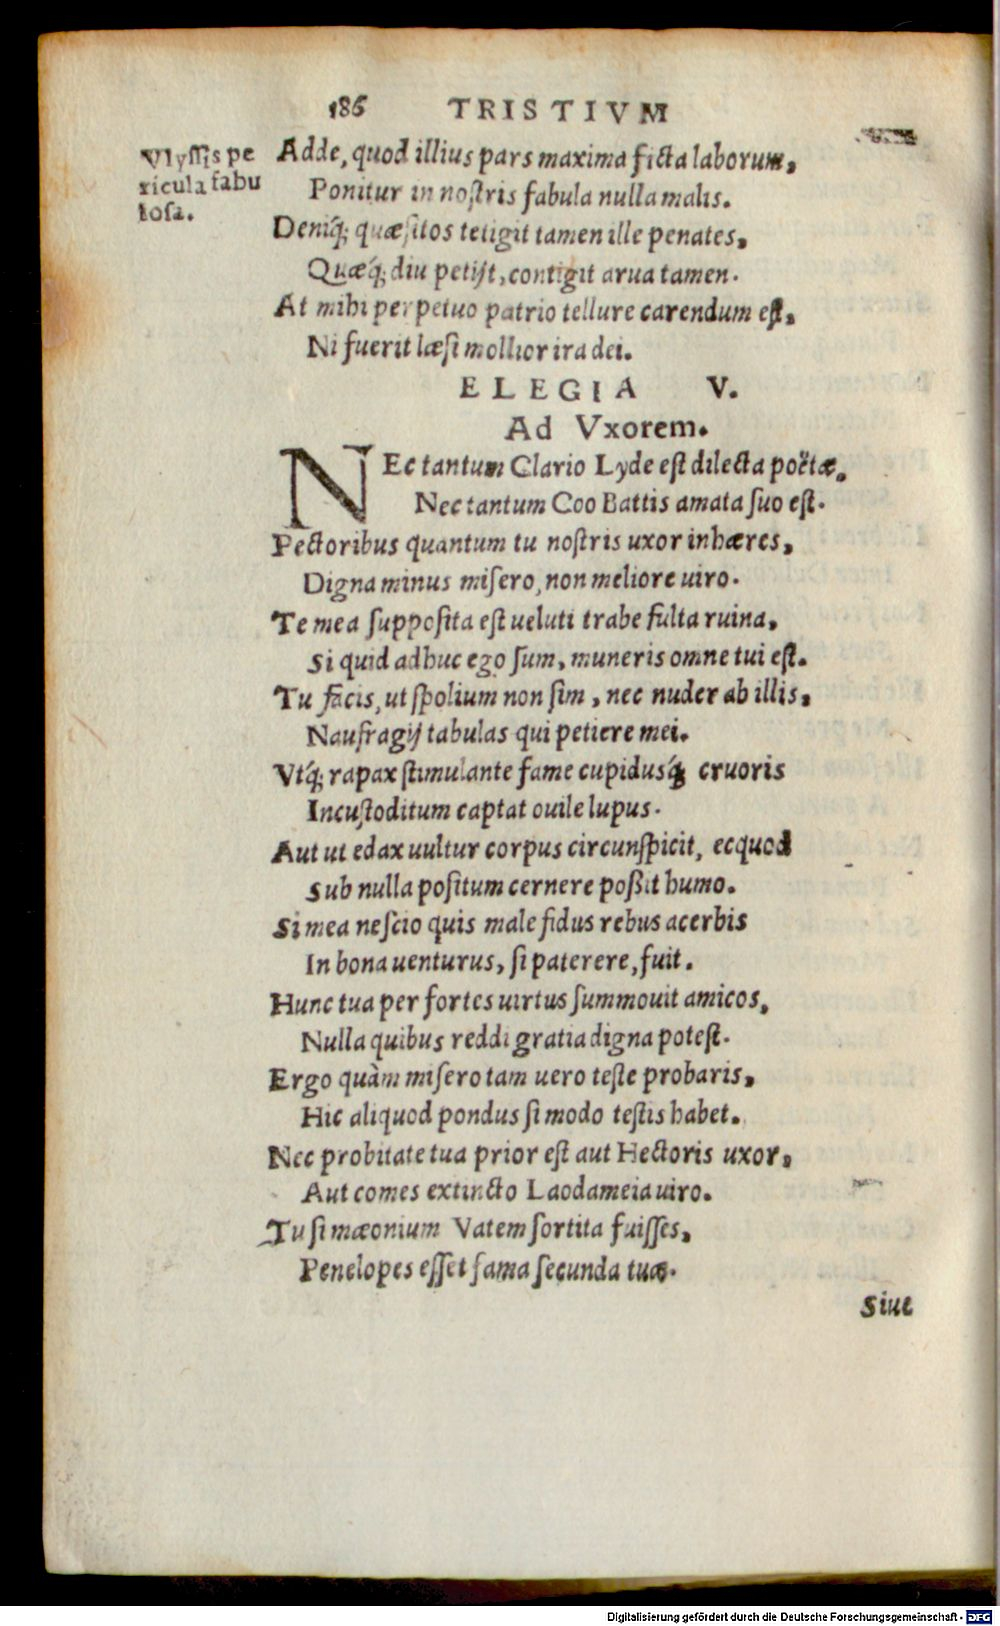 186 TRISTIVM
Vlyssis pe
ricula fabu
losa.
Adde, quod illius pars maxima ficta laborum,
Ponitur in nostris fabula nulla malis.
Deniq́; quæsitos tetigit tamen ille penates,
Quæq́; diu petijt, contigit arua tamen.
At mihi perpetuo patrio tellure carendum est,
Ni fuerit læsi mollior ira dei.
ELEGIA V.
Ad Vxorem.
NEc tantum Clario Lyde est dilecta poëtæ,
Nec tantum Coo Battis amata suo est.
Pectoribus quantum tu nostris uxor inhæres,
Digna minus misero, non meliore uiro.
Te mea supposita est ueluti trabe fulta ruina,
Si quid adhuc ego sum, muneris omne tui est.
Tu facis, ut spolium non sim, nec nuder ab illis,
Naufragij tabulas qui petiere mei.
Vtq́; rapax stimulante fame cupidusq́; cruoris
Incustoditum captat ouile lupus.
Aut ut edax uultur corpus circunspicit, ecquod
Sub nulla positum cernere poßit humo.
Si mea nescio quis male fidus rebus acerbis
In bona uenturus, si paterere, fuit.
Hunc tua per fortes uirtus summouit amicos,
Nulla quibus reddi gratia digna potest.
Ergo quàm misero tam uero teste probaris,
Hic aliquod pondus si modo testis habet.
Nec probitate tua prior est aut Hectoris uxor,
Aut comes extincto Laodameia uiro.
Tu si mæonium Vatem sortita fuisses,
Penelopes esset fama secunda tuæ.
Siue
Digitalisierung gefördert durch die Deutsche Forschungsgemeinschaft - DFG